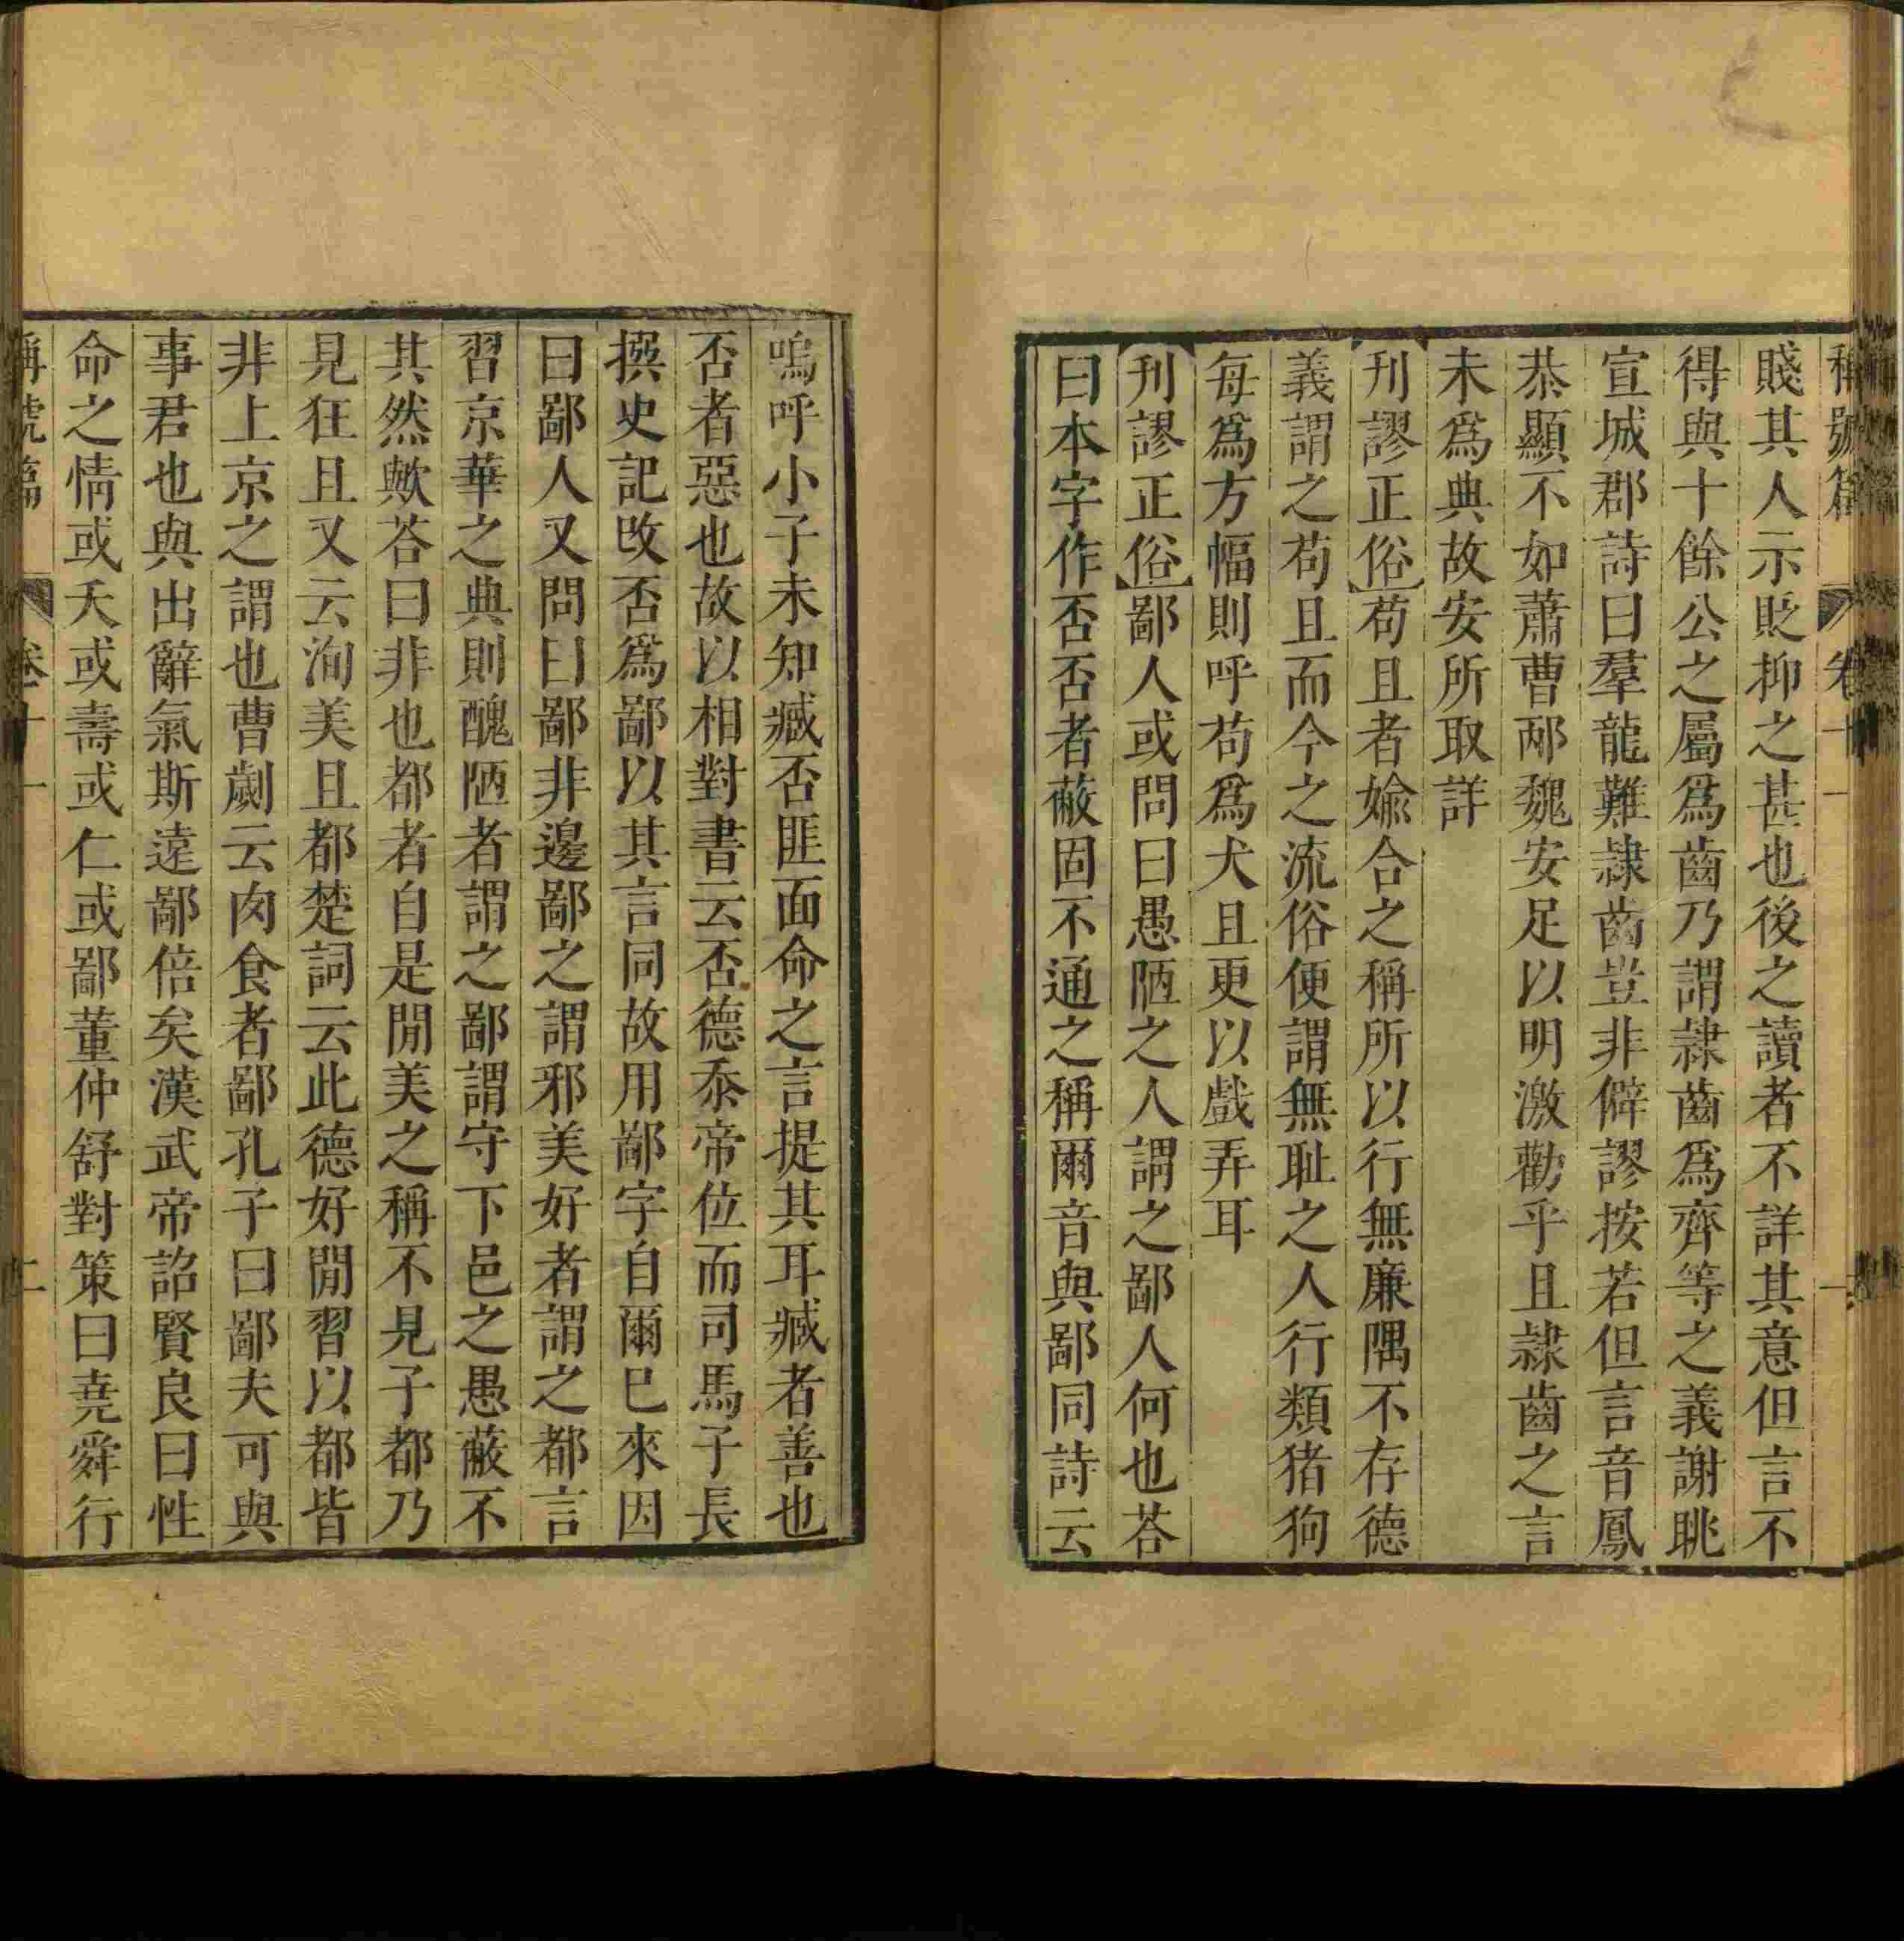 稱號篇 卷十一
賤其人示貶抑之甚也後之讀者不詳其意但言不
得與十餘公之屬爲齒乃謂隷齒爲齊等之義謝眺
宣城郡詩曰羣龍難隷齒豈非僻謬按若但言音鳳
恭顯不如蕭曹邴魏安足以明激勸乎且隷齒之言
未爲典故安所取詳
刋謬正俗苟且者媮合之稱所以行無廉隅不存德
義謂之苟且而今之流俗便謂無耻之人行類猪狗
每爲方幅則呼苟爲犬且更以戲弄耳
刋謬正俗鄙人或問曰愚陋之人謂之鄙人何也荅
曰本字作否否者蔽固不通之稱爾音與鄙同詩云
嗚呼小子未知臧否匪面命之言提其耳臧者善也
否者惡也故以相對書云否德忝帝位而司馬子長
撰史記改否爲鄙以其言同故用鄙字自爾已來因
曰鄙人又問曰鄙非邊鄙之謂邪美好者謂之都言
習京華之典則醜陋者謂之鄙謂守下邑之愚蔽不
其然歟荅曰非也都者自是閒美之稱不見子都乃
見狂且又云洵美且都楚詞云此德好閒習以都皆
非上京之謂也曹劌云肉食者鄙孔子曰鄙夫可與
事君也與出辭氣斯遠鄙倍矣漢武帝詔賢良曰性
命之情或夭或壽或仁或鄙董仲舒對策曰堯舜行
稱號篇 卷十一 二